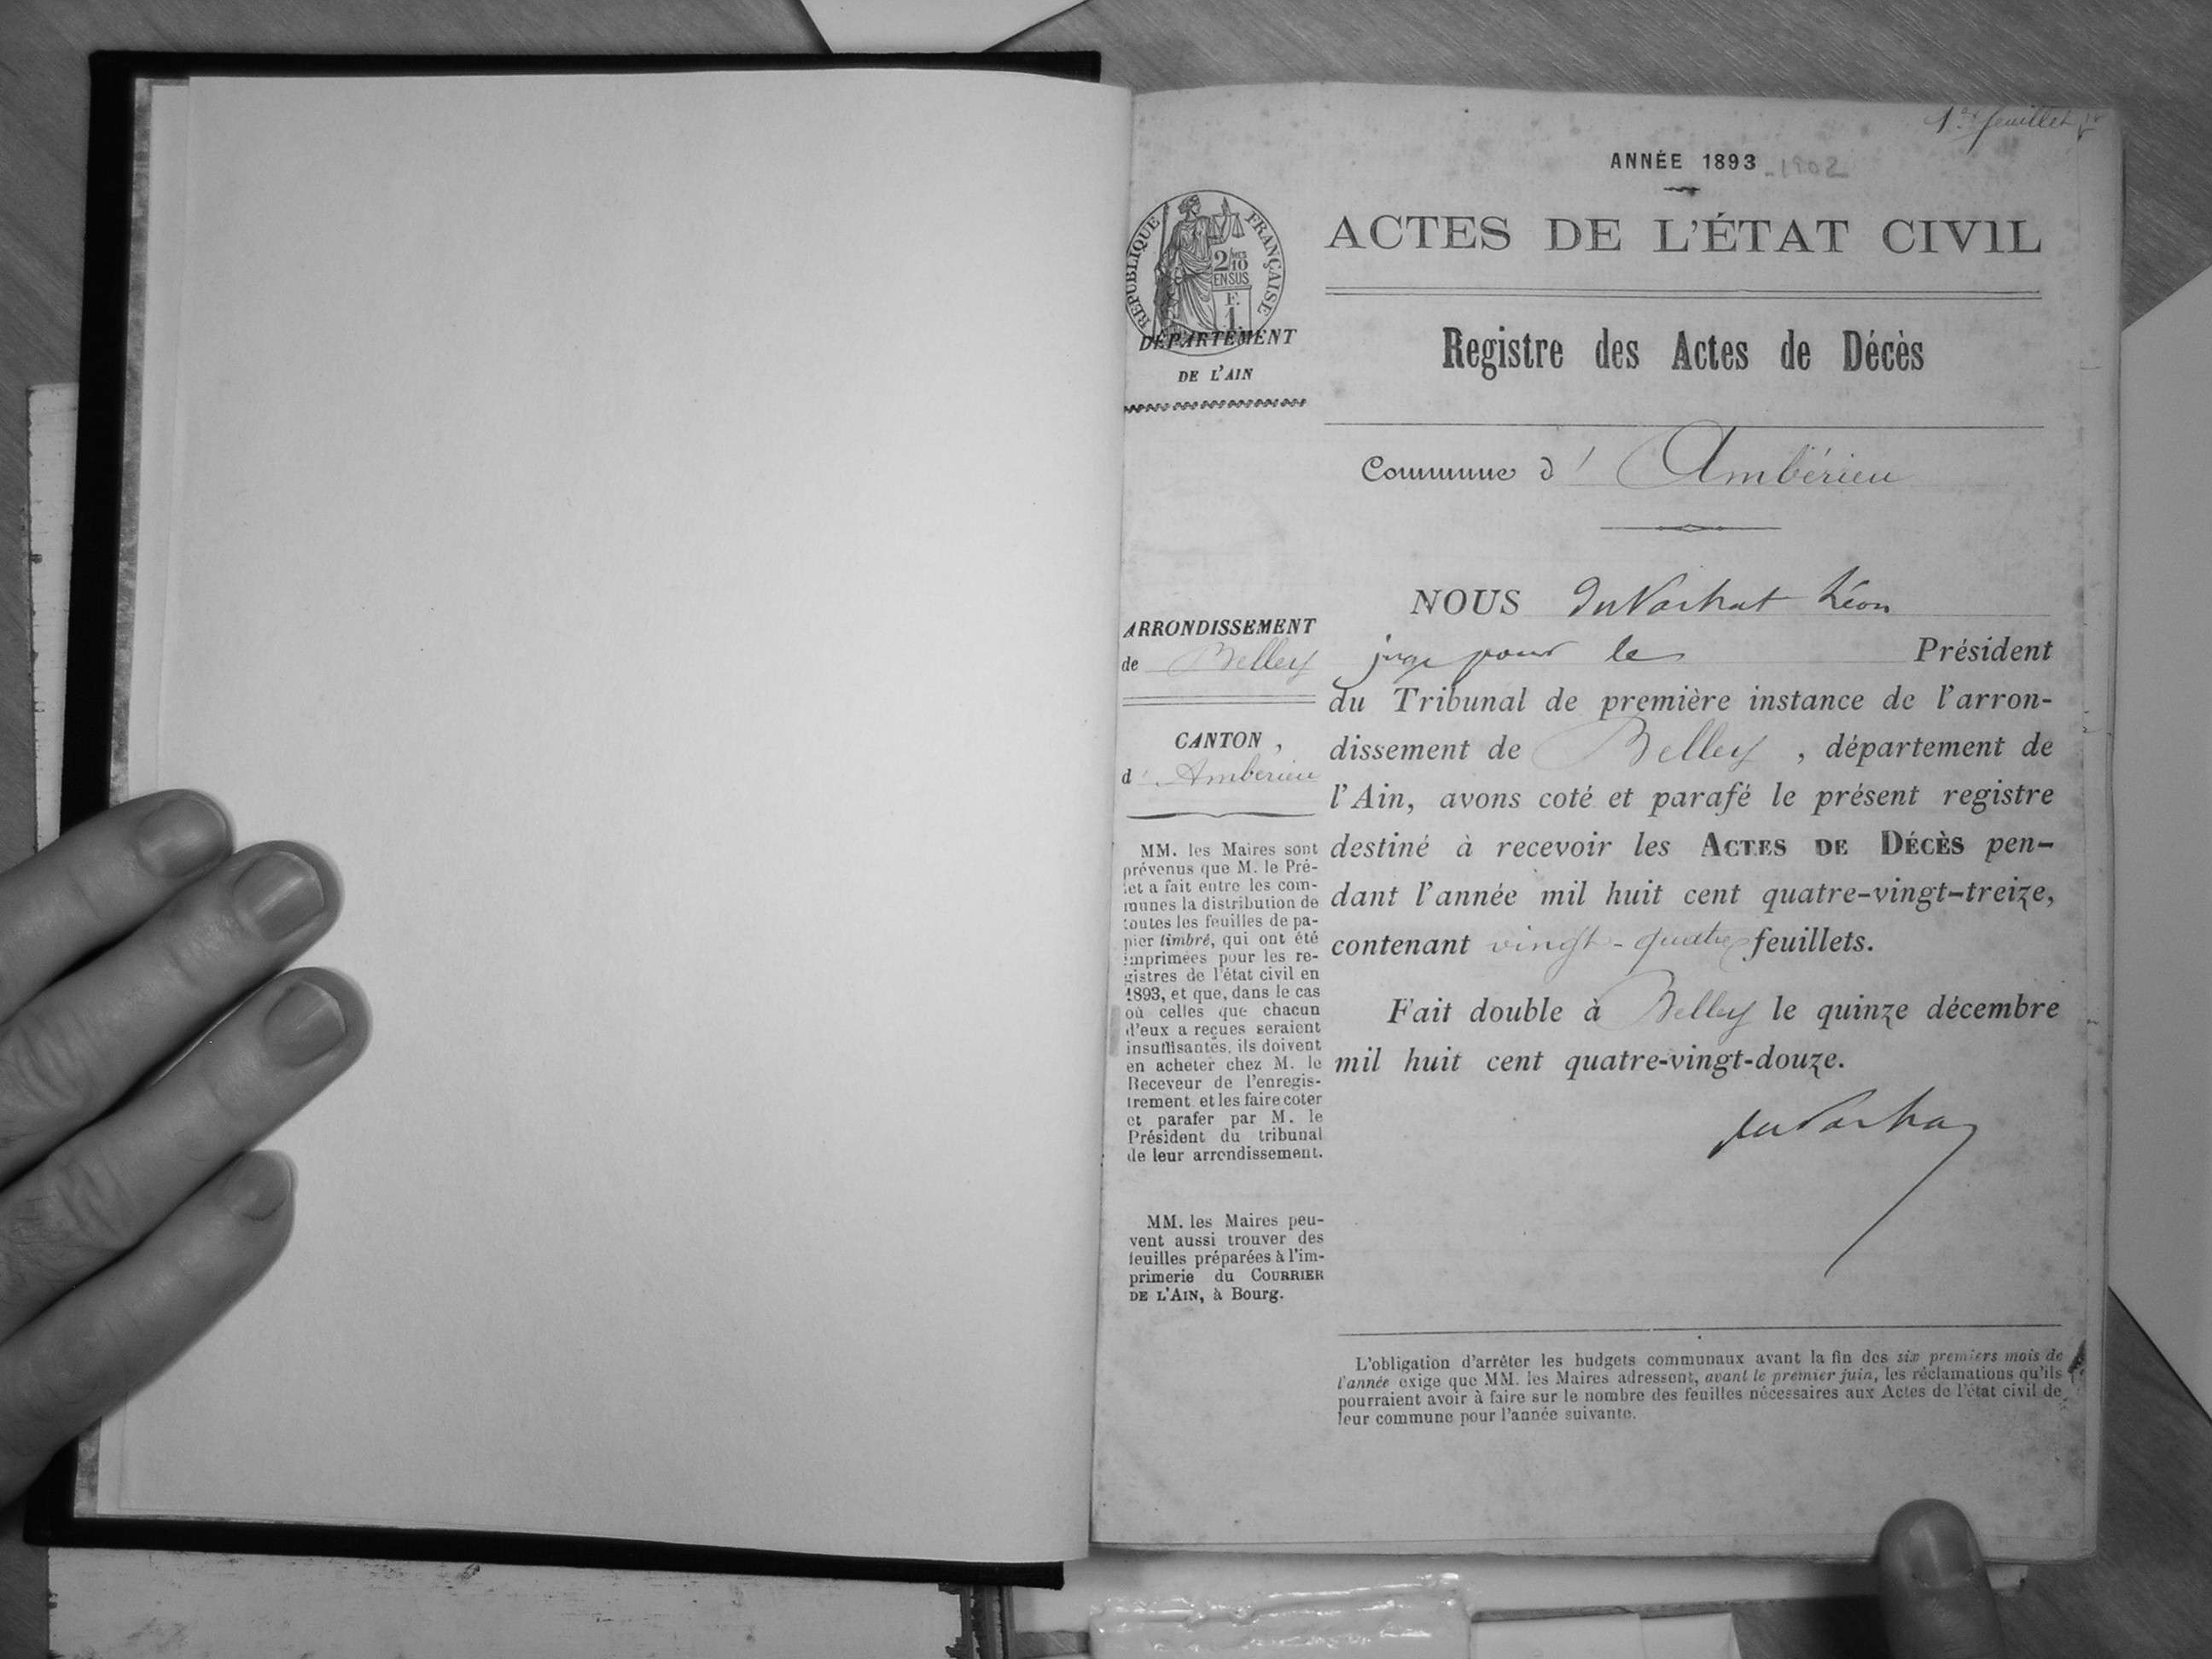 1er feuillet
ANNÉE 1893 - 1902
ACTES DE L'ÉTAT CIVIL
RÉPUBLIQUE FRANÇAISE
2/10
EN SUS
F.
1
DÉPARTEMENT
DE L'AIN
Registre des Actes de Décès
Commune d' Ambérieu
ARRONDISSEMENT
de Belley
CANTON
d' Ambérieu
MM. les Maires sont
prévenus que M. le Pré-
fet a fait entre les com-
munes la distribution de
toutes les feuilles de pa-
pier timbré, qui ont été
imprimées pour les re-
gistres de l'état civil en
1893, et que, dans le cas
où celles que chacun
d'eux a reçues seraient
insuffisantes, ils doivent
en acheter chez M. le
Receveur de l'enregis-
trement et les faire coter
et parafer par M. le
Président du tribunal
de leur arrondissement.
MM. les Maires peu-
vent aussi trouver des
feuilles préparées à l'im-
primerie du COURRIER
DE L'AIN, à Bourg.
NOUS Léon
juge pour le Président
du Tribunal de première instance de l'arron-
dissement de Belley, département de
l'Ain, avons coté et parafé le présent registre
destiné à recevoir les ACTES DE DÉCÈS pen-
dant l'année mil huit cent quatre-vingt-treize,
contenant vingt-quatre feuillets.
Fait double à Belley le quinze décembre
mil huit cent quatre-vingt-douze.
L'obligation d'arrêter les budgets communaux avant la fin des six premiers mois de
l'année exige que MM. les Maires adressent, avant le premier juin, les réclamations qu'ils
pourraient avoir à faire sur le nombre des feuilles nécessaires aux Actes de l'état civil de
leur commune pour l'année suivante.